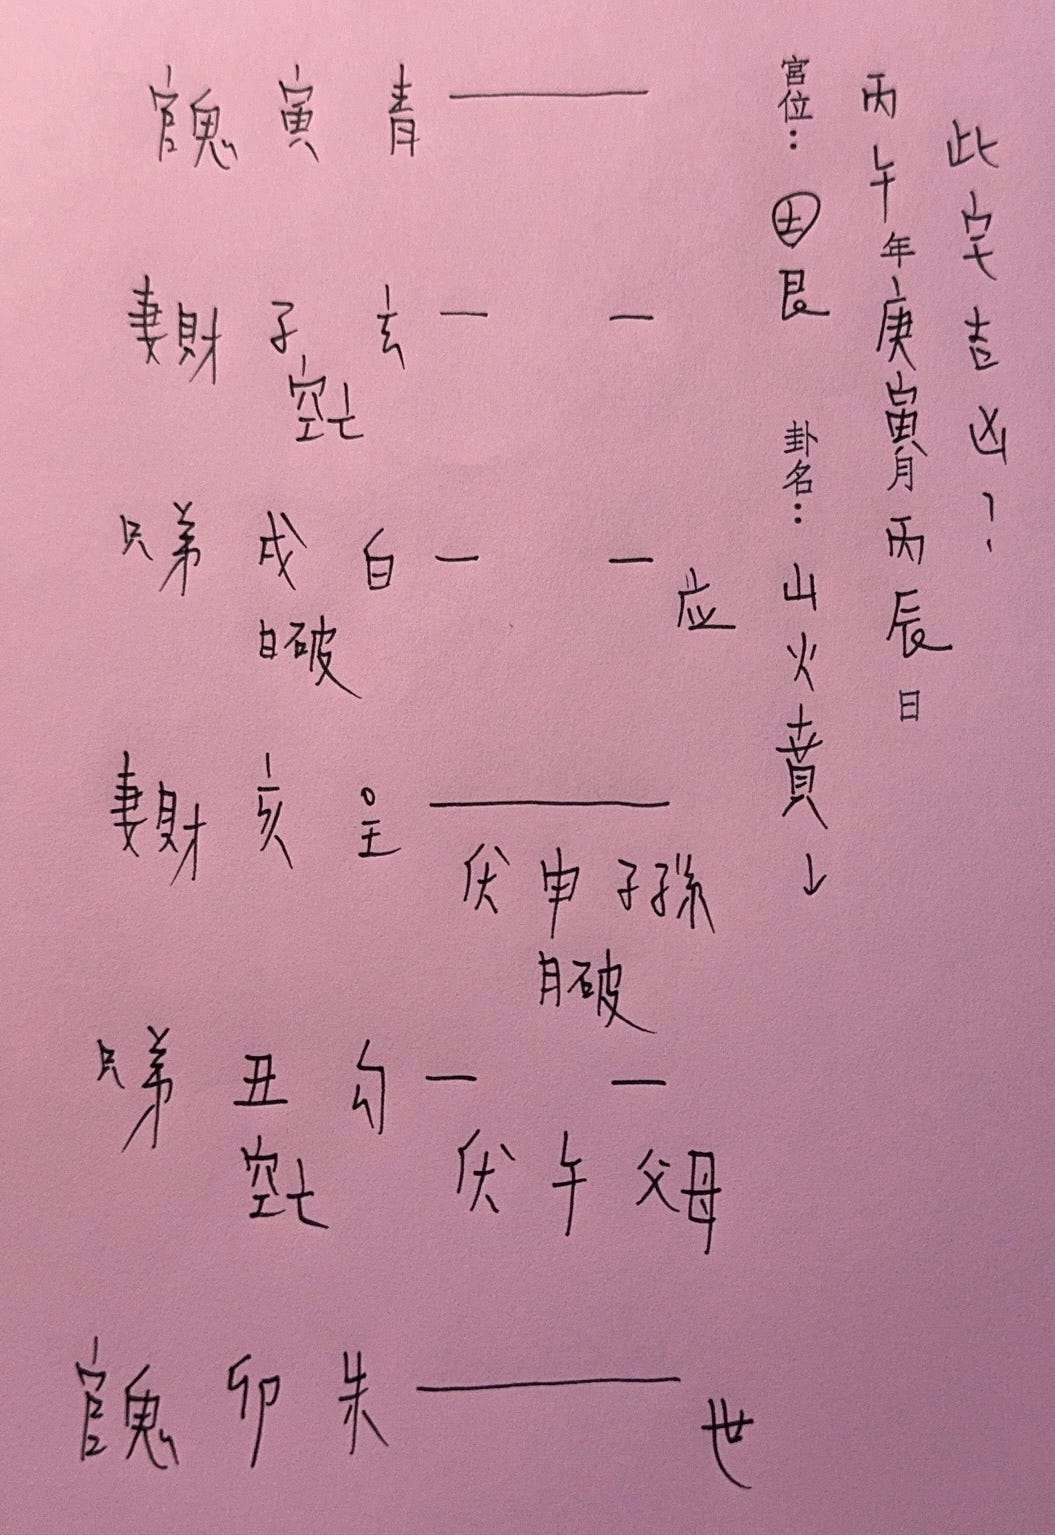 此宅吉凶？
丙午年庚寅月丙辰日
宮位：㊏艮 卦名：山火賁↓
官鬼 寅 青
妻財 子 玄
空亡
兄弟 戌 白 应
日破
妻財 亥
伏 申 子孫
月破
兄弟 丑 勾
空亡 伏 午 父母
官鬼 卯 朱 世